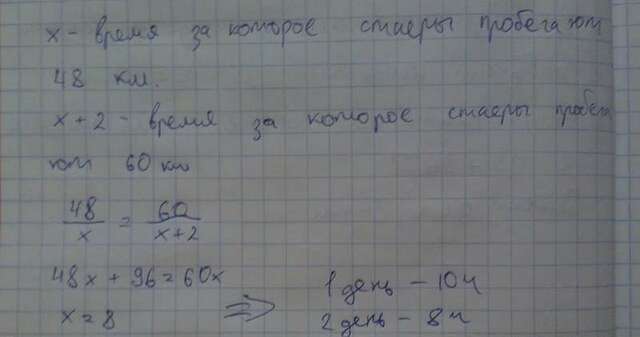 x - время за которое стаеры пробегают
48 км.
x + 2 - время за которое стаеры пробега
ют 60 км
48/x = 60/x+2
48x + 96 = 60x
x = 8 ⇒ 1 день - 10ч
2 день - 8ч